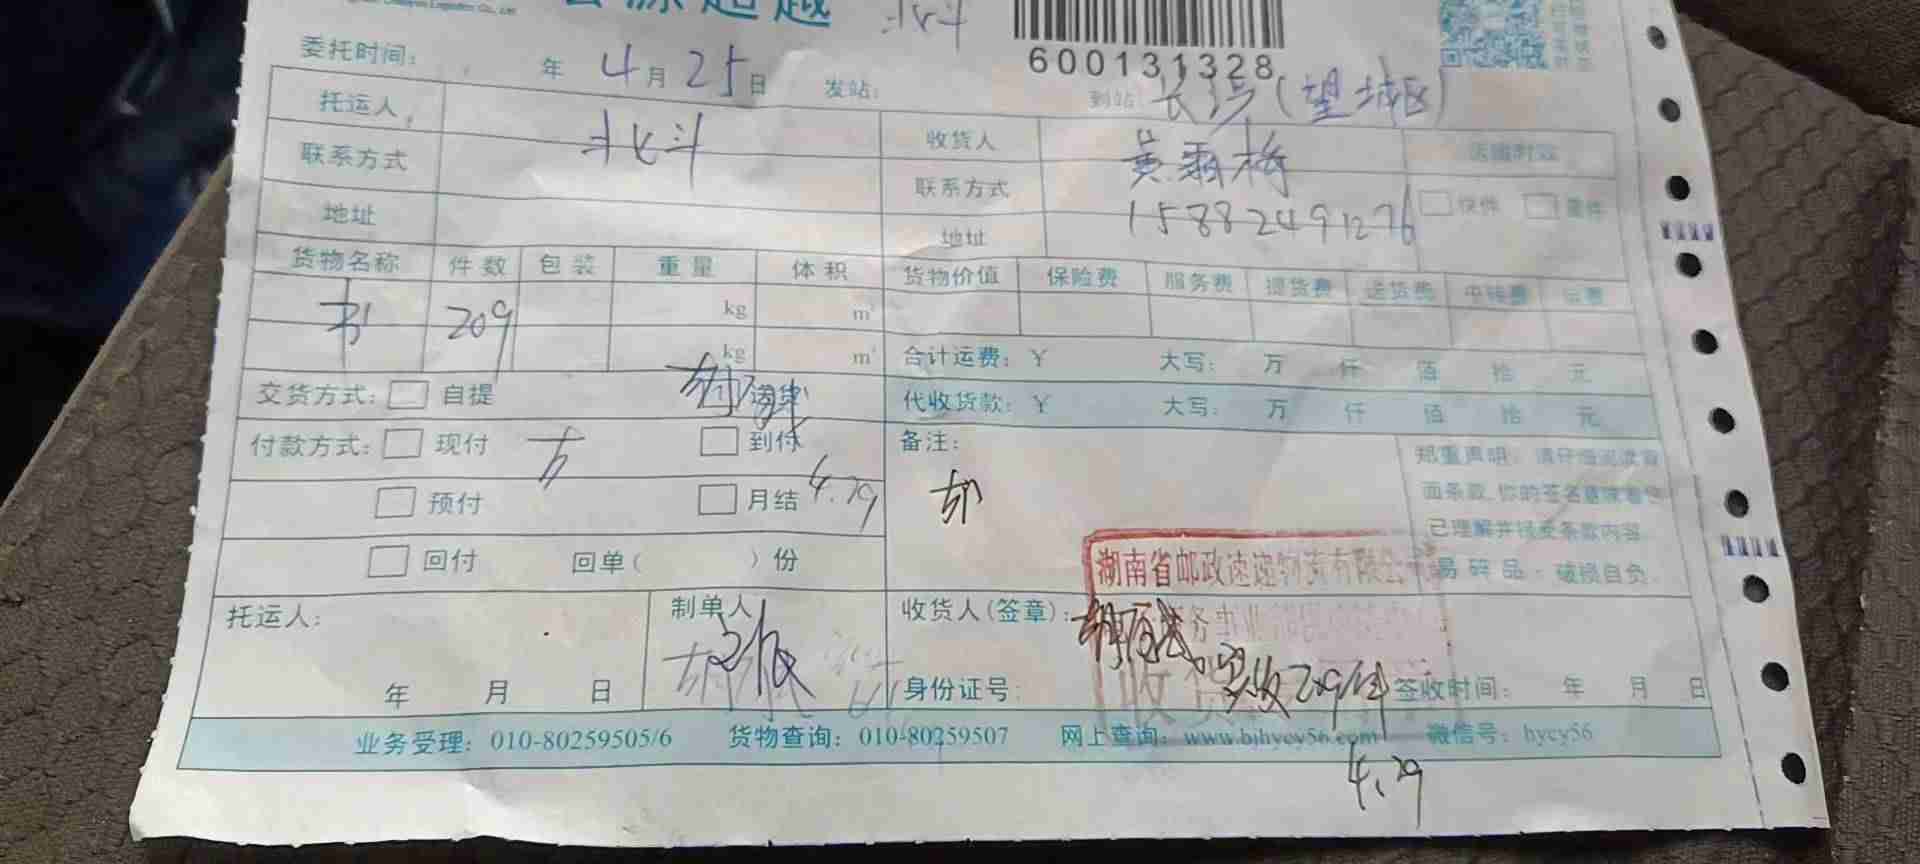 超越 北斗
600131328
委托时间： 年 4月25日 发站： 到站：长沙(望城区)
托运人 北斗 收货人 黄 梅
联系方式 联系方式 15882491276
地址 地址
货物名称 件数 包装 重量 体积 货物价值 保险费 服务费 提货费 送货费 中转费
书 209 kg m³
kg m³ 合计运费：￥ 大写： 万 仟 佰 拾 元
交货方式：□ 自提 送货 代收货款：￥ 大写： 万 仟 佰 拾 元
付款方式：□ 现付 方 □ 到付 备注：
□ 预付 □ 月结 4.29
□ 回付 回单（ ）份
郑重声明：请仔细阅读背
面条款,你的签名意味着您
已理解并接受条款内容
易碎品，破损自负.
湖南省邮政速递物流有限公司
托运人： 制单人 收货人(签章)：
实收209件
年 月 日 身份证号： 签收时间： 年 月 日
业务受理：010-80259505/6 货物查询：010-80259507 网上查询：www.bjhycy56.com 微信号：hycy56
4.29